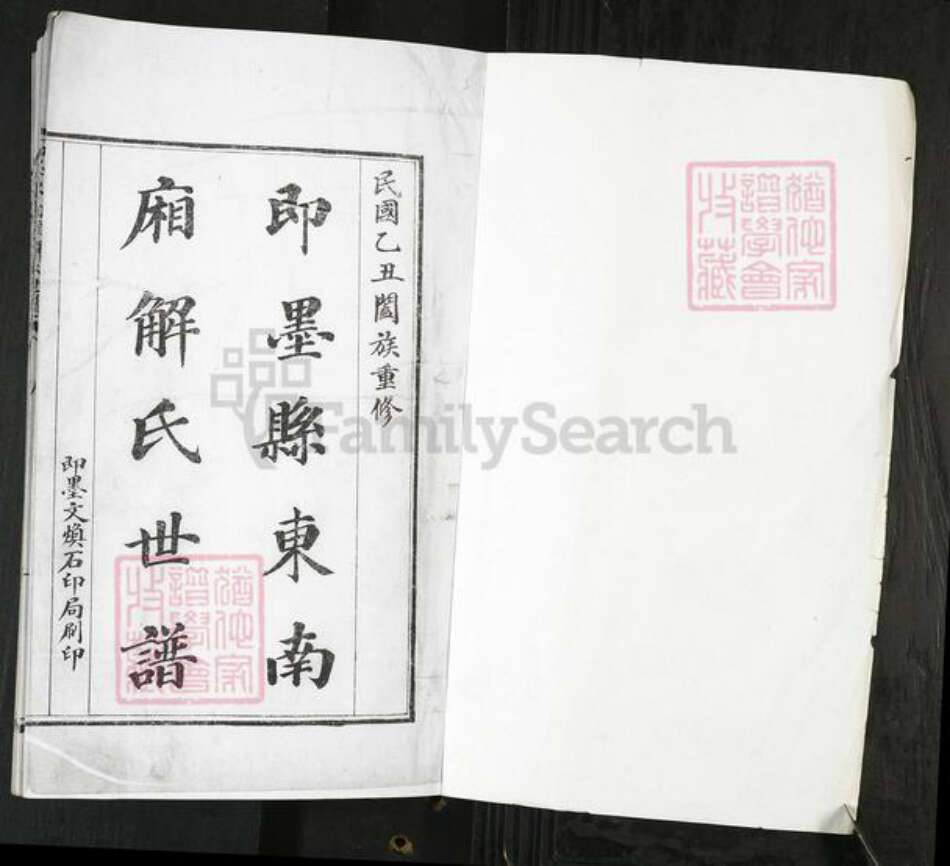 民國乙丑闔族重修
即墨縣東南
廂解氏世譜
即墨文煥石印局刷印
猶他家
譜學會
收藏
猶他家
譜學會
收藏
FamilySearch